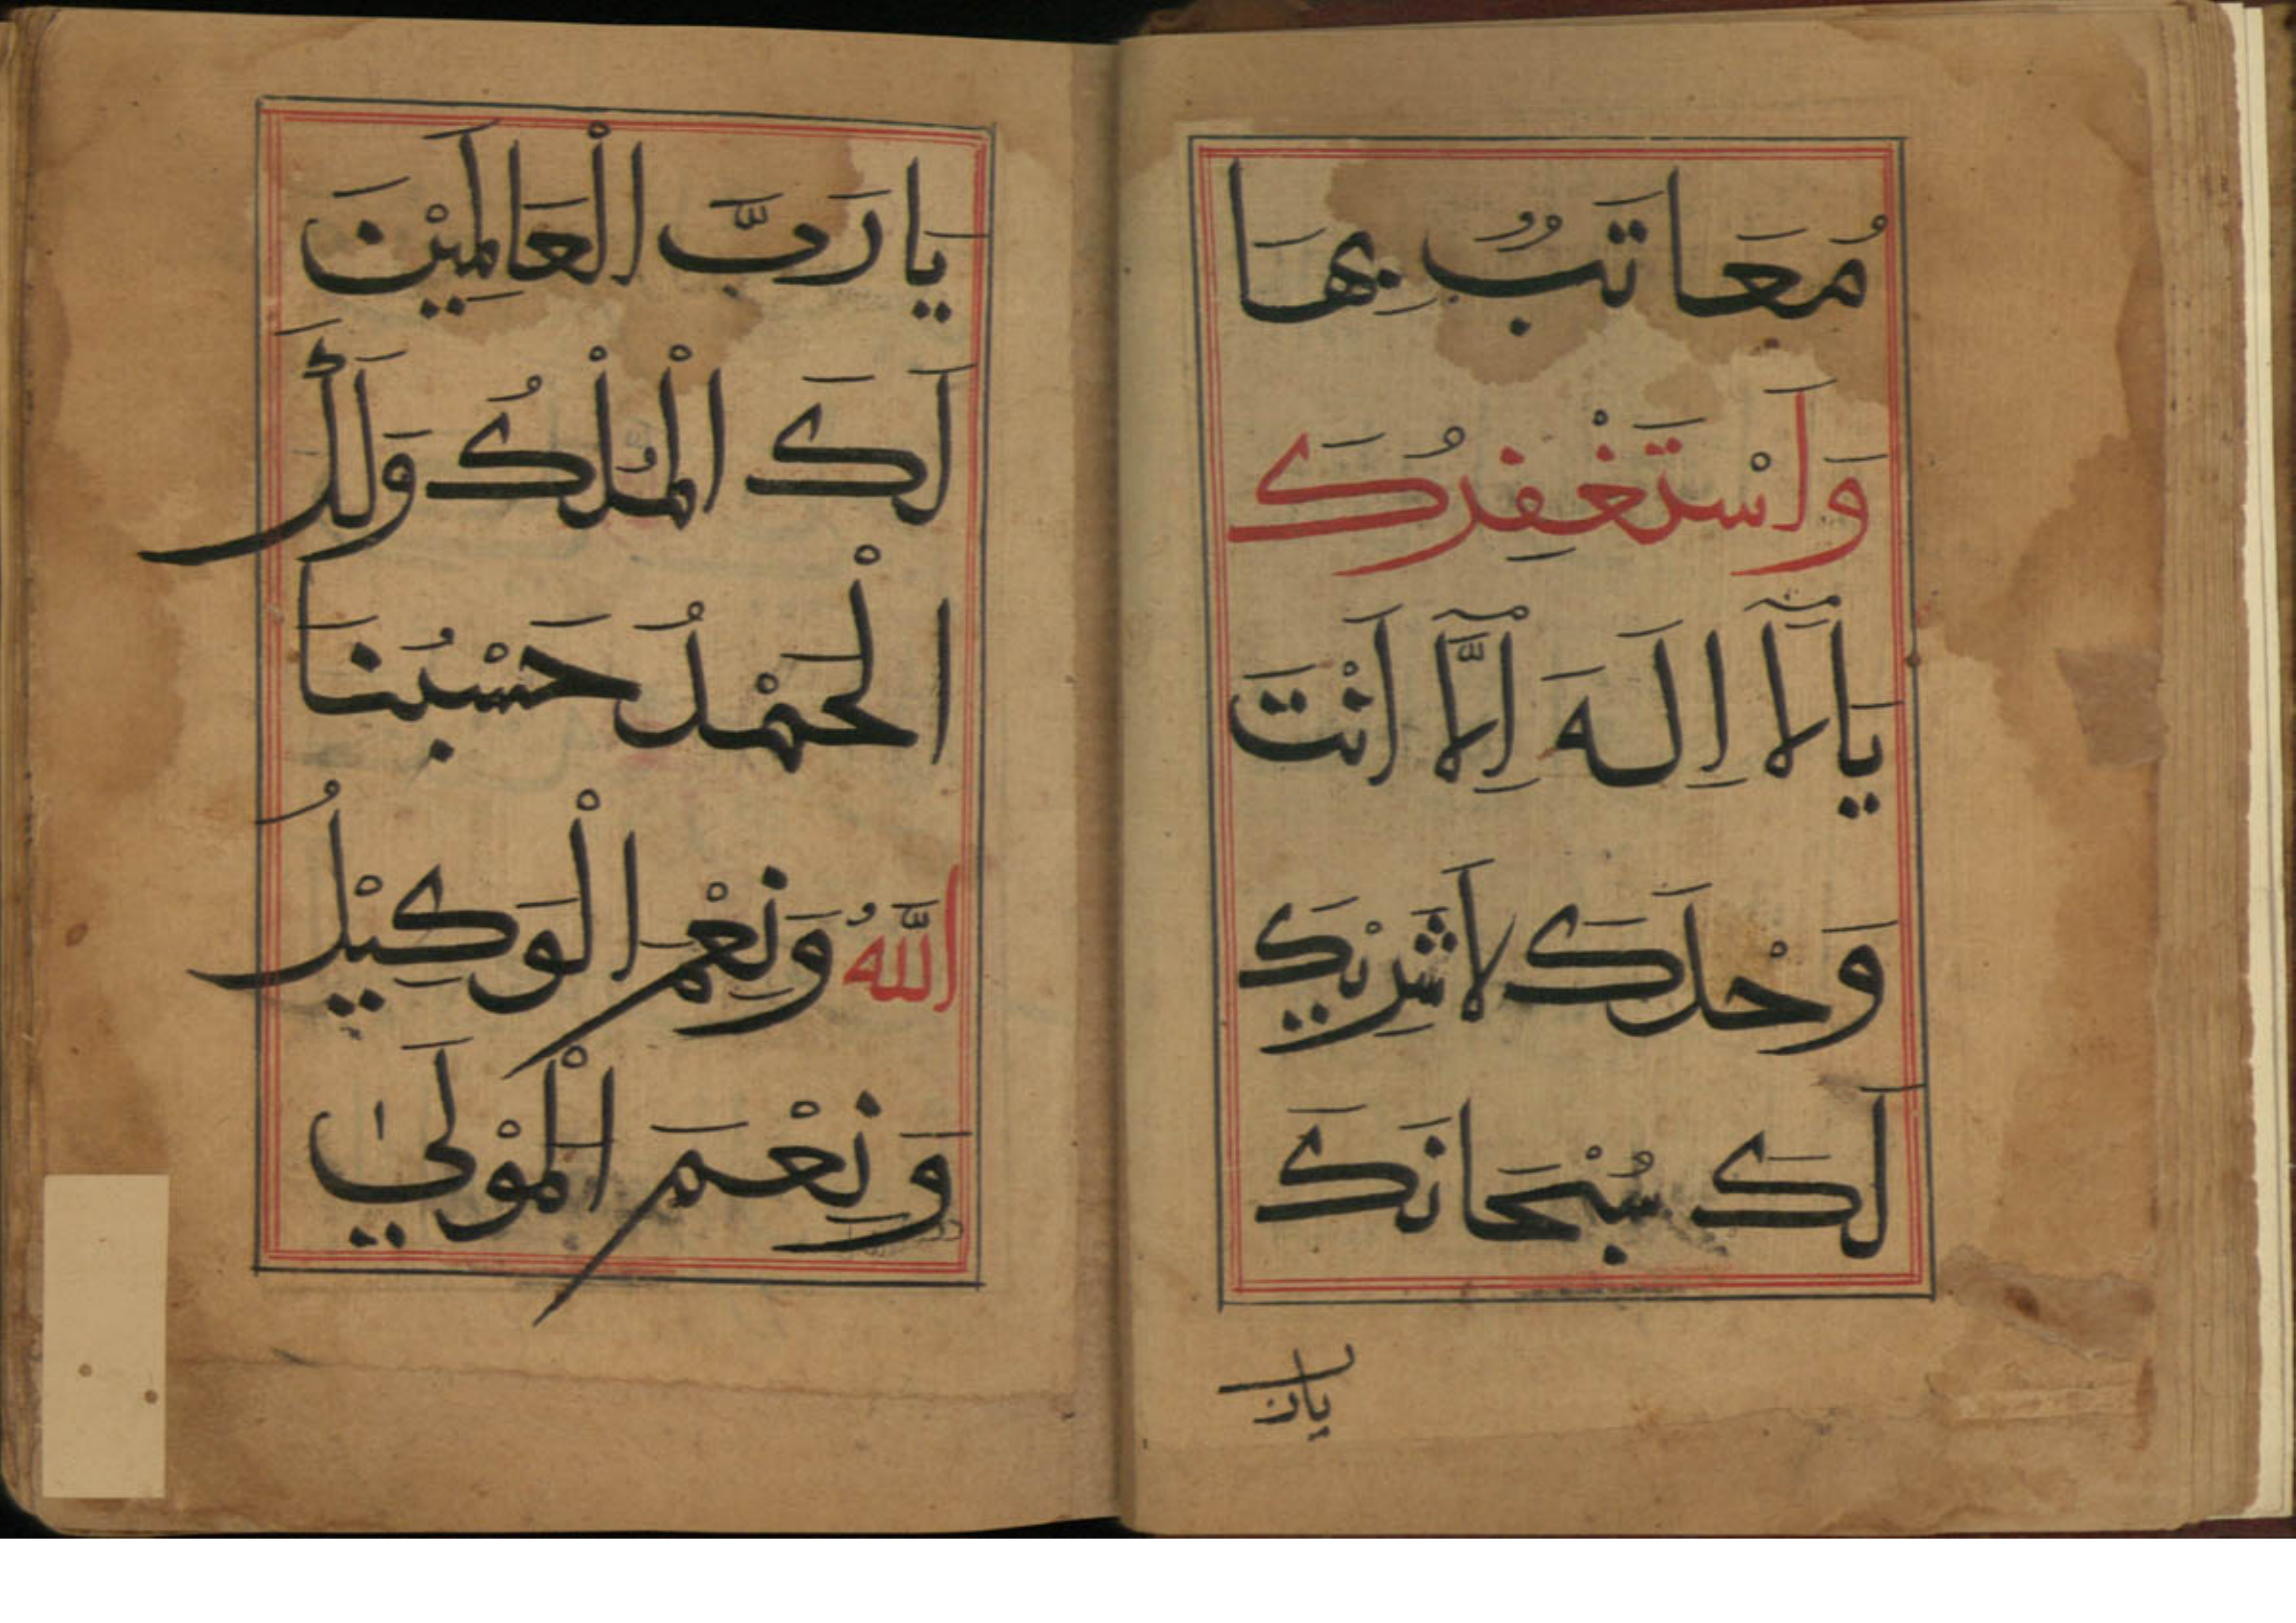 مُعَاتَبٌ بِهَا
وَاَسْتَغْفِرُكَ
يَالَآ اِلَهَ اِلَّآ اَنْتَ
وَحْدَكَ لَاشَرِيْكَ
لَكَ سُبْحَانَكَ
يارب
يَارَبَّ الْعَالَمِيْنَ
لَكَ الْمُلْكُ وَلَكَ
الْحَمْدُ حَسْبُنَا
اللَّهُ وَنِعْمَ الْوَكِيْلُ
وَنِعْمَ الْمَوْلَىٰ